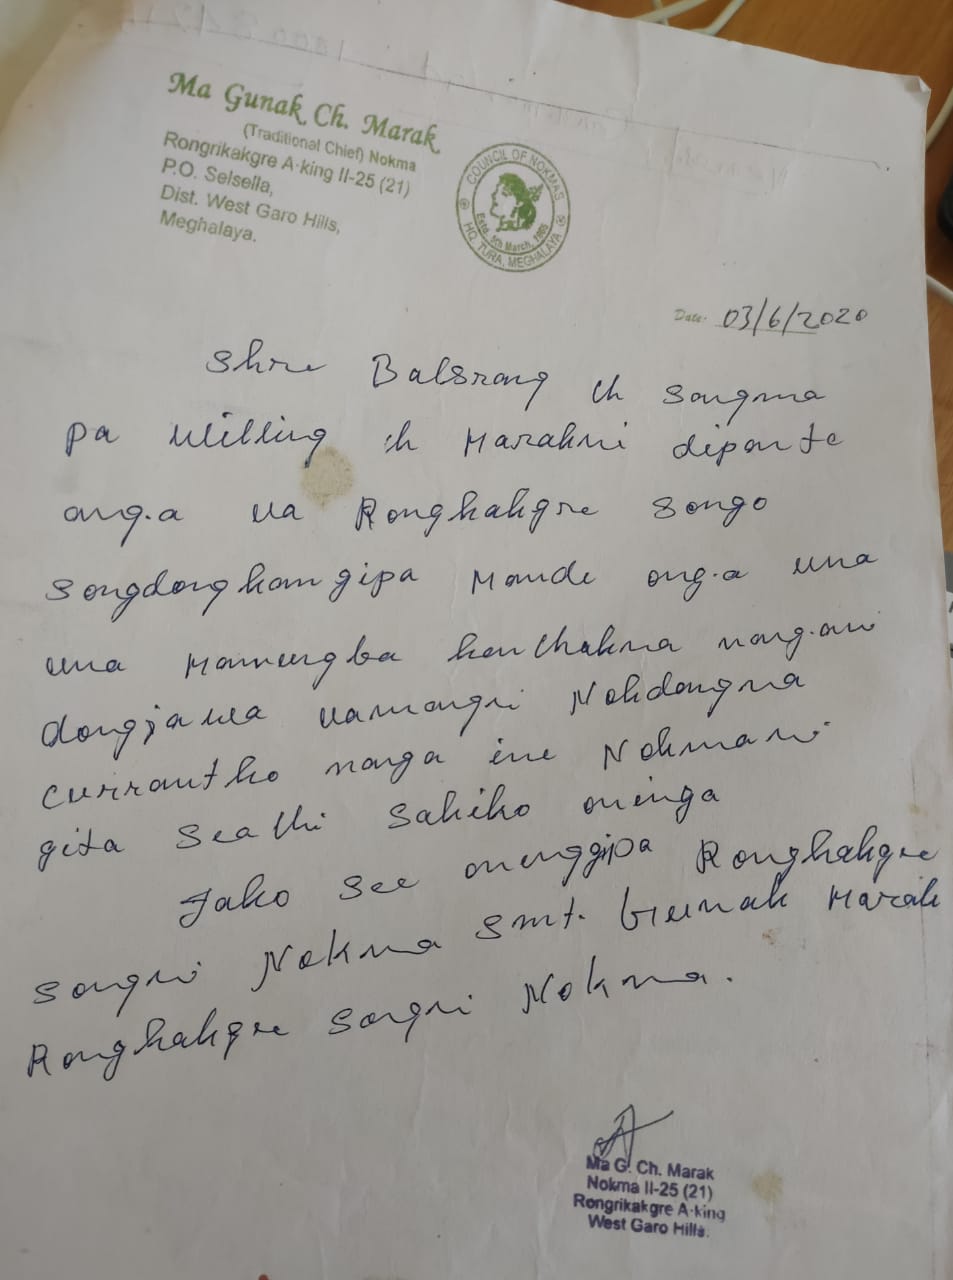 Ma Gunak Ch. Marak
(Traditional Chief) Nokma
Rongrikakgre A·king II-25 (21)
P.O. Selsella,
Dist. West Garo Hills,
Meghalaya.
COUNCIL OF NOKMAS
Estd. 5th March,
HQ. TURA, MEGHALAYA
Date- 03/6/2020
Shre Balsrang ch Sangma
pa Willing ch Marakni diponte
ong.a ua Ronghakgre Songo
Songdongkamgipa Mande ong.a una
una Mamungba kenchakna nang.ani
dongjawa uamangni Nokdangna
currantko nanga ine Nokmani
gita sakiko onenga
Jako See onenggipa Ronghakgre
songni Nokma Smt. Gunak Marak
Ronghakgre songni Nokma.
Ma G. Ch. Marak
Nokma II-25 (21)
Rongrikakgre A·king
West Garo Hills.